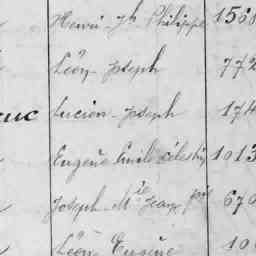 Henri Jh Philippe 156
Léon Joseph 772
Lucien Joseph 174
Eugène Emile Célestin 1013
Joseph Mie Jean 670
Léon Eugène 10